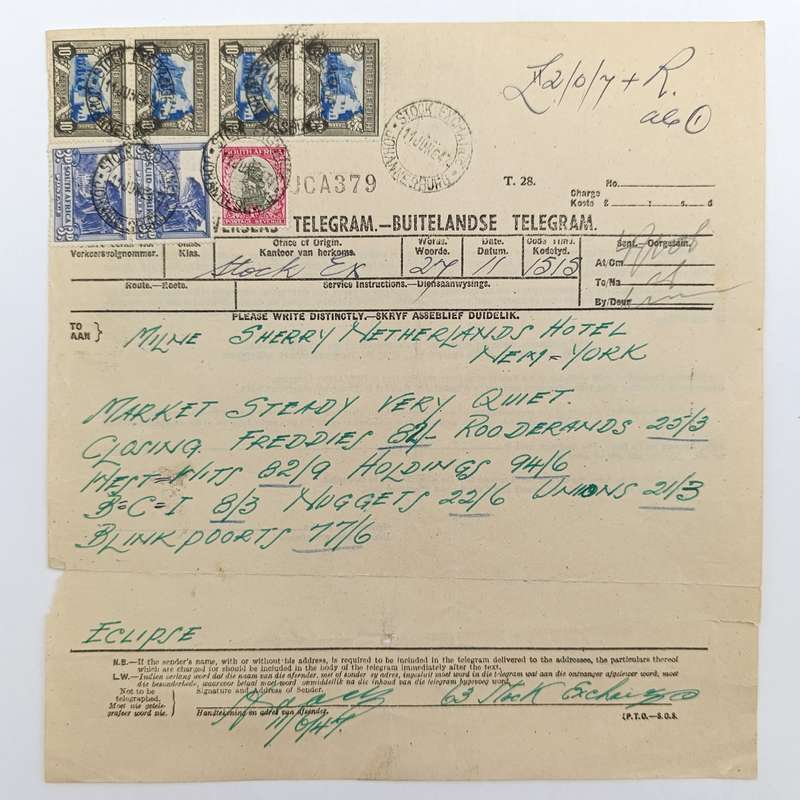 £2/0/7 + R.
STOCK EXCHANGE
JOHANNESBURG
11 JUN 47
SOUTH AFRICA
POSTAGE REVENUE
JCA379
T. 28.
No.
Charge
Koste £ : s. : d.
TELEGRAM.—BUITELANDSE TELEGRAM.
Verkeersvolgnommer.
Class.
Klas.
Office of Origin.
Kantoor van herkoms.
Stock Ex
Words.
Woorde.
27
Date.
Datum.
11
Code Time.
Kodetyd.
1515
Sent.—Oorgesein.
At/Om
To/Na
By/Deur
Route.—Roete.
Service Instructions.—Diensaanwysings.
PLEASE WRITE DISTINCTLY.—SKRYF ASSEBLIEF DUIDELIK.
TO
AAN
MILNE SHERRY NETHERLANDS HOTEL
NEW=YORK
MARKET STEADY VERY QUIET.
CLOSING FREDDIES 82/- ROODERANDS 25/3
WEST=WITS 82/9 HOLDINGS 94/6
B=C=I 8/3 NUGGETS 22/6 UNIONS 21/3
BLINKPOORTS 77/6
ECLIPSE
N.B.—If the sender's name, with or without his address, is required to be included in the telegram delivered to the addresses, the particulars thereof
which are charged for should be included in the body of the telegram immediately after the text.
L.W.—Indien verlang word dat die naam van die afsender, met of sonder sy adres, ingesluit moet word in die telegram wat aan die ontvanger afgelewer word, moet
die besonderhede, waarvoor betaal moet word onmiddellik na die inhoud van die telegram bygevoeg word.
Not to be
telegraphed.
Moet nie getele-
grafeer word nie.
Signature and Address of Sender.
63 Stock Exchange
Handtekening en adres van afsender.
11/6/47
(P.T.O.—S.O.S.